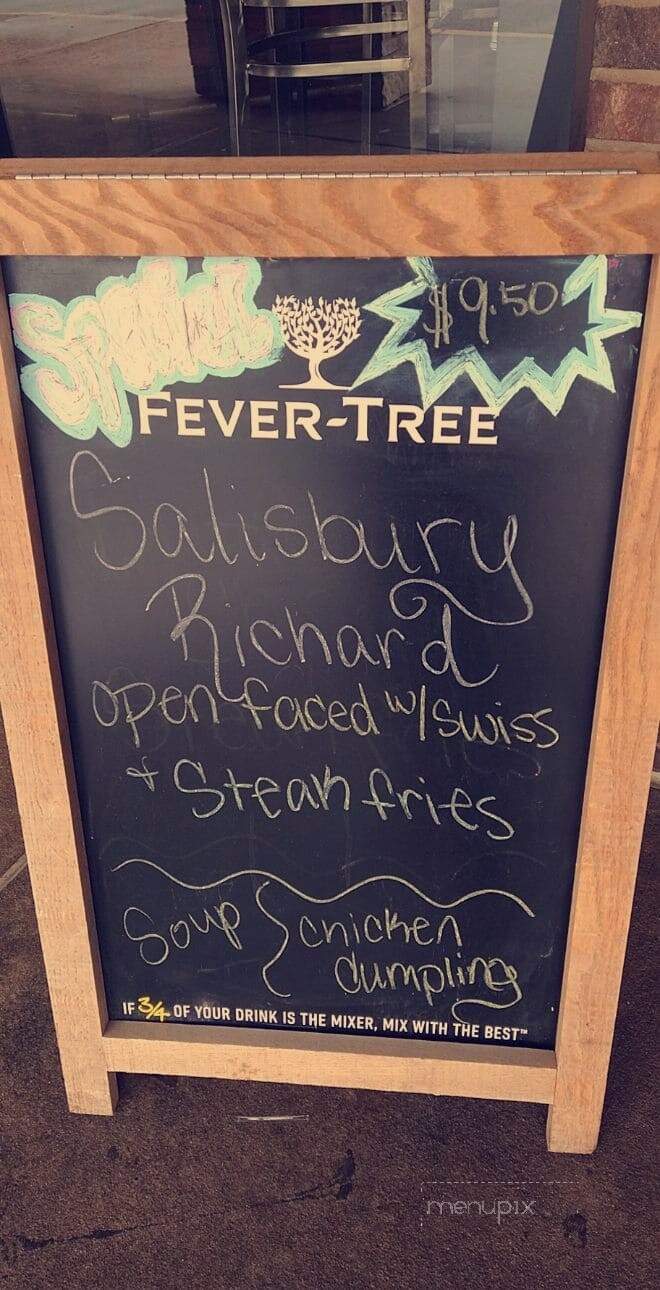 Special
$9.50
FEVER-TREE
Salisbury
Richard
open faced w/ swiss
+ Steak fries
Soup { chicken
dumpling
IF 3/4 OF YOUR DRINK IS THE MIXER, MIX WITH THE BEST™
menupix